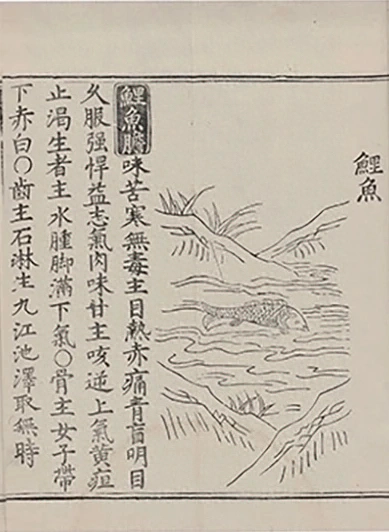 鯉魚
鯉魚膽味苦寒無毒主目熱赤痛青盲明目
久服强悍益志氣肉味甘主咳逆上氣黄疸
止渴生者主水腫脚滿下氣○骨主女子帶
下赤白○齒主石淋生九江池澤取無時